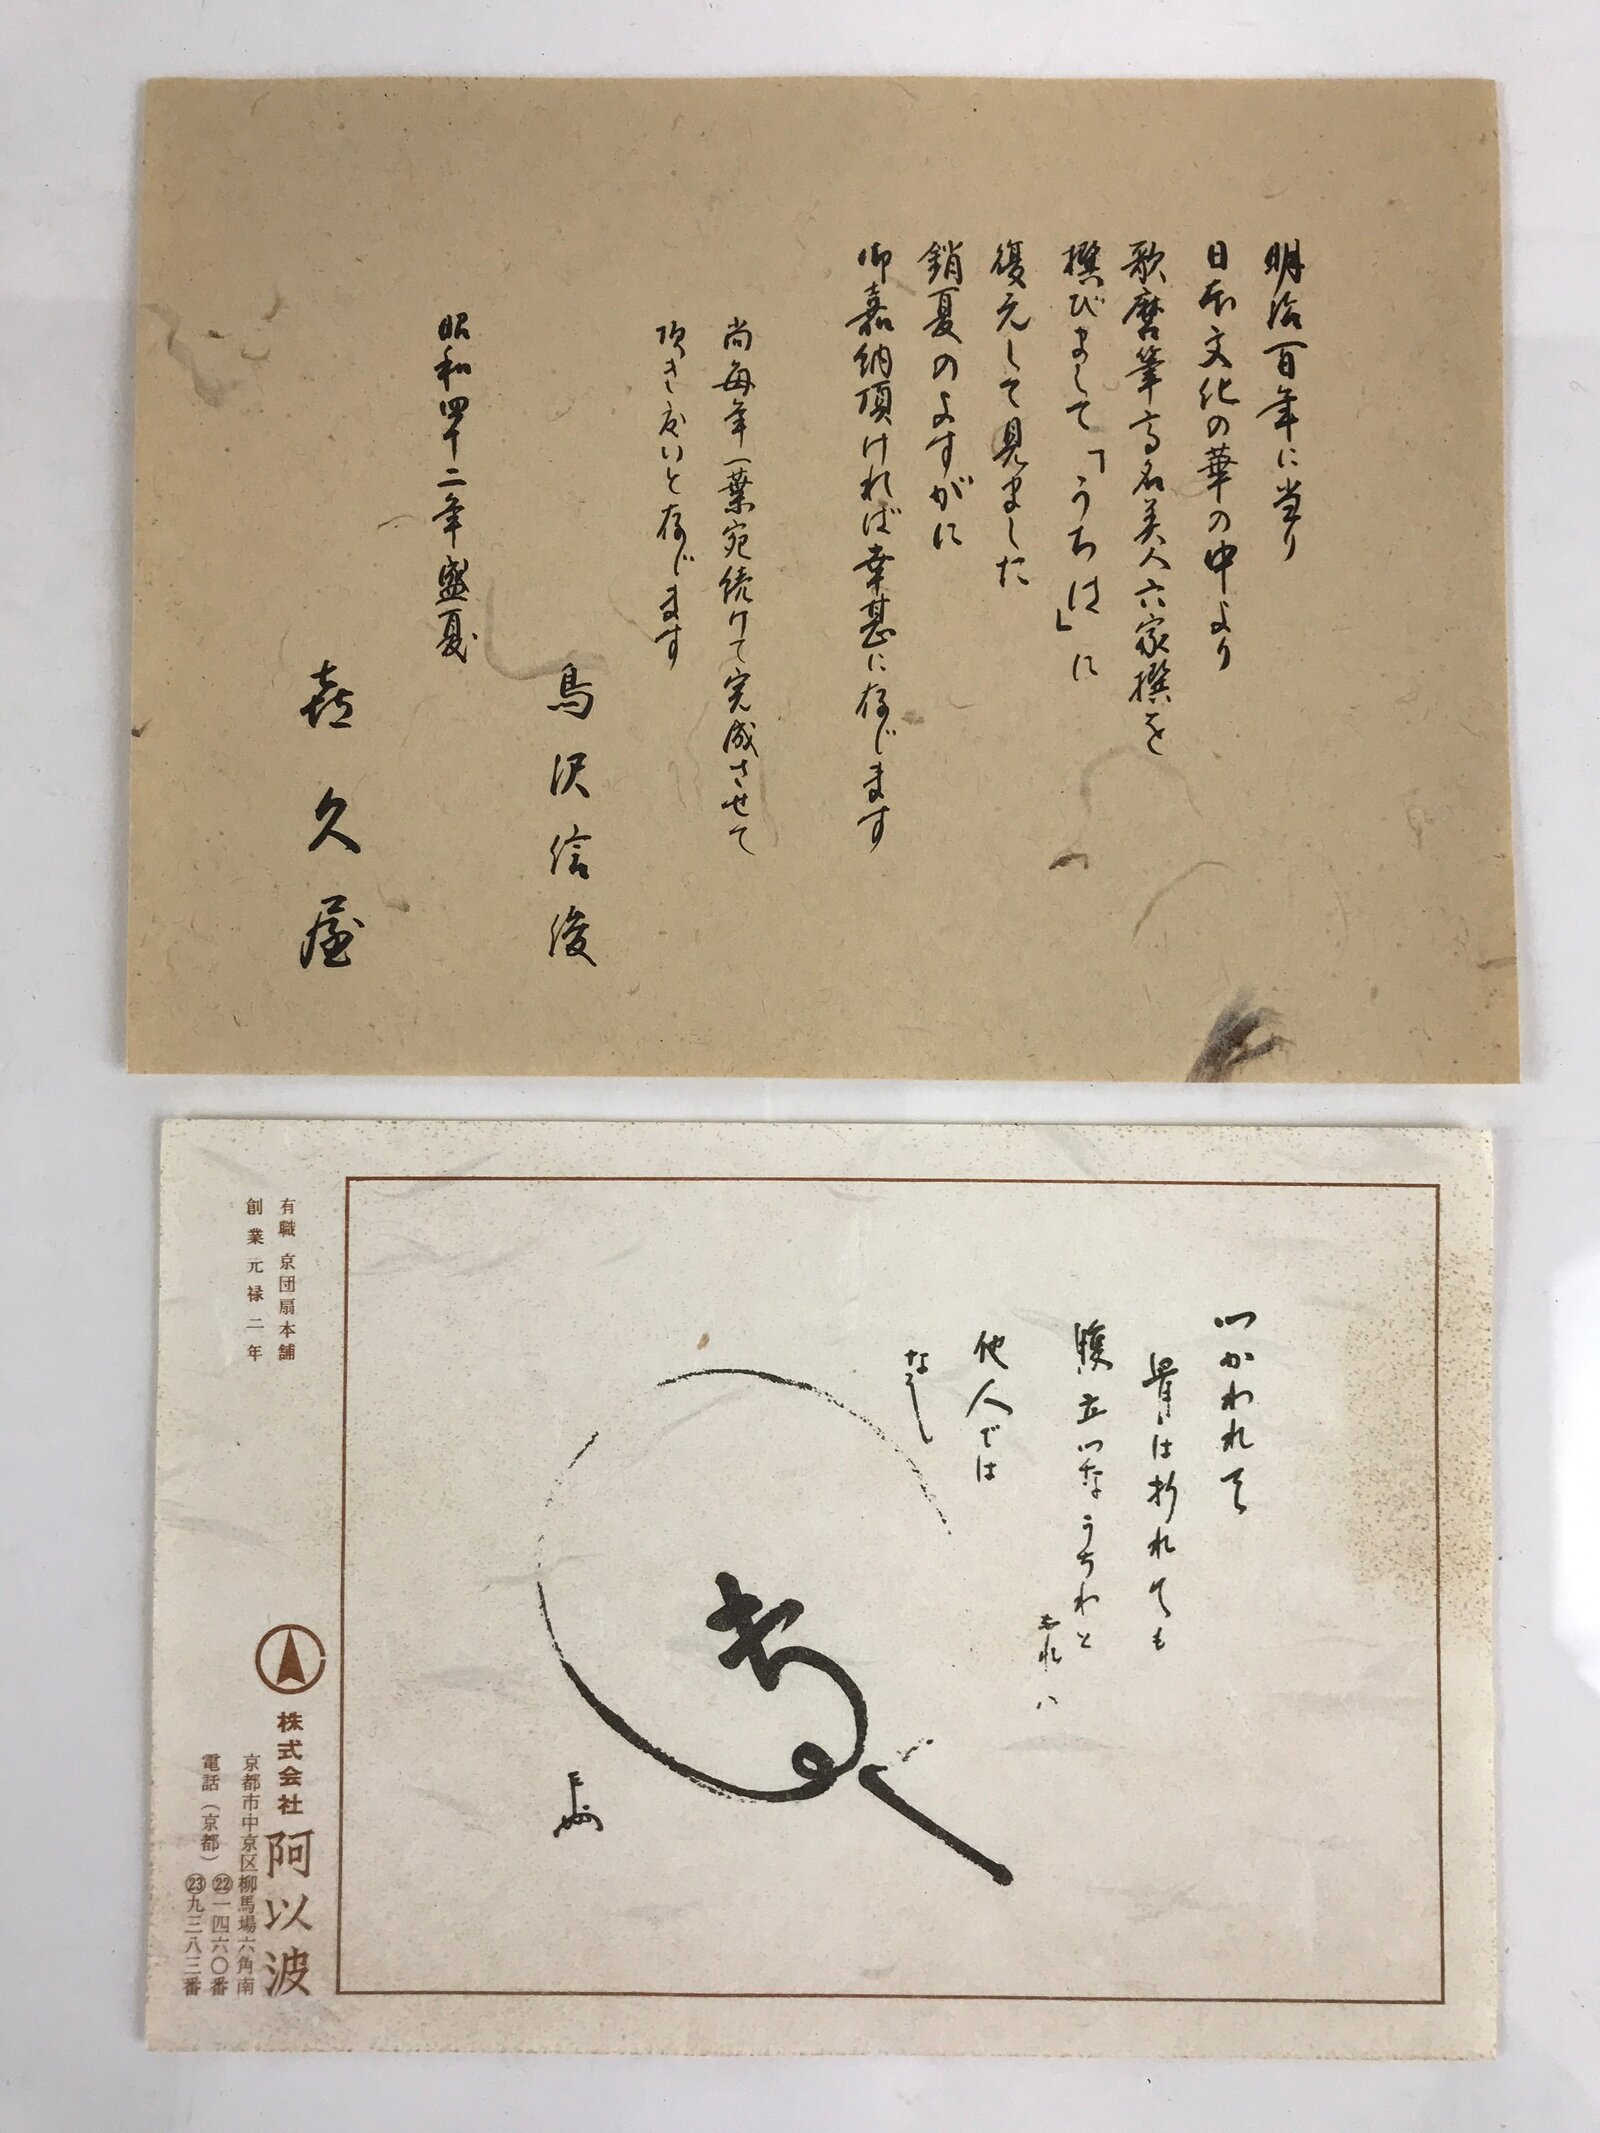 明治百年に当り
日本文化の華の中より
歌麿筆高名美人六家撰を
撰びまして「うちは」に
復元して見ました
銷夏のよすがに
御嘉納頂ければ幸甚に存じます
尚毎年一葉宛続けて完成させて
頂き度いと存じます
鳥沢信俊
昭和四十二年盛夏
㐂久屋
つかわれて
骨は折れても
腹立つなうちわと
あれハ
他人では
なし
有職 京団扇本舗
創業元禄二年
株式会社 阿以波
京都市中京区柳馬場六角南
電話(京都)㉒一四六〇番
㉓九三八三番